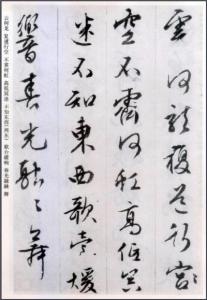 雲何龍復道行
空不霽何虹高低冥
迷不知東西歌臺暖
響春光融々舞
云何龙 复道行空 不霁何虹 高低冥迷 不知东西(西东) 歌台暖响 春光融融 舞